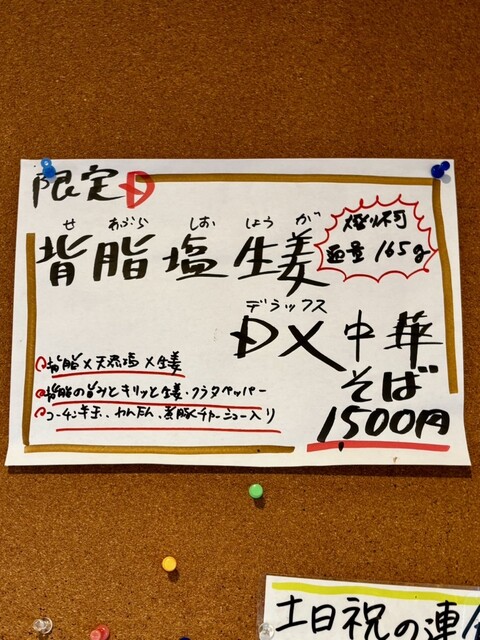 限定D
せ あぶら しお しょう が
背脂塩生姜
大盛り不可
麺量165g
デラックス
DX中華
そば
1500円
背脂×天然塩×生姜
背脂の旨みとキリッと生姜・クラタペッパー
コーチン半玉、わんたん、黒豚チャーシュー入り
土日祝の連